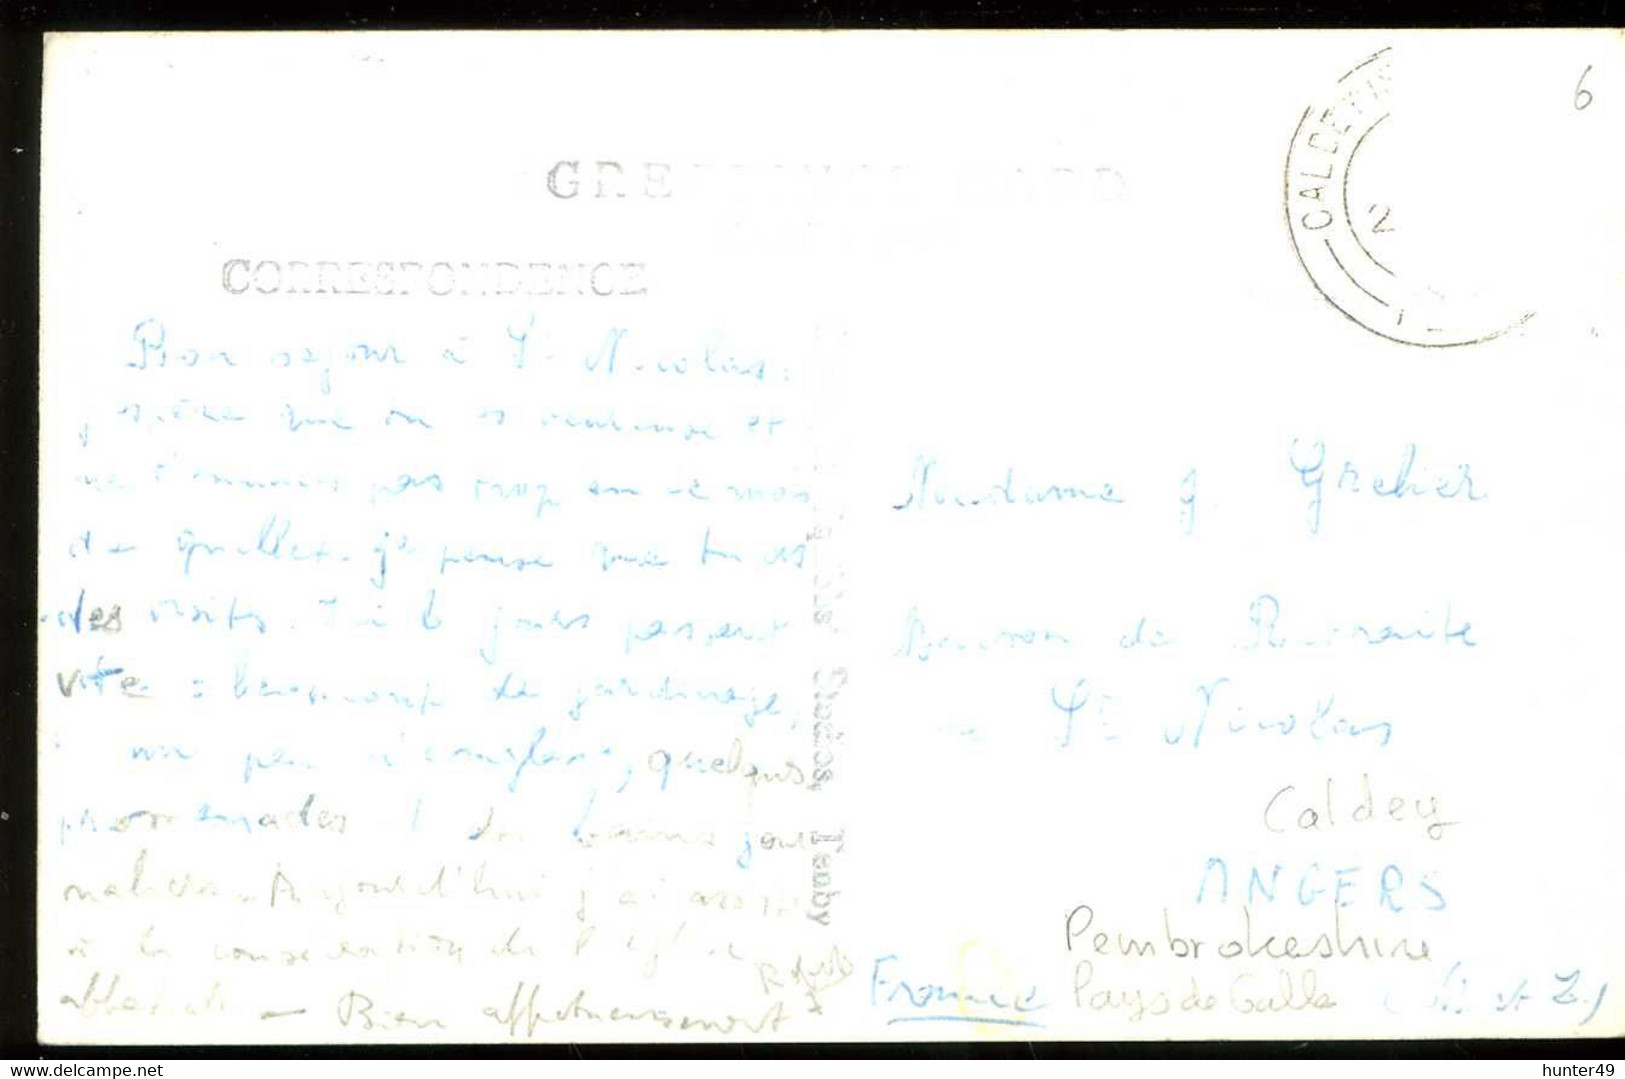 CALDEY
2
6
GREETINGS CARD
CORRESPONDENCE
Bon séjour à St Nicolas.
J'espère que tu es heureuse et
ne t'ennuies pas trop en ce mois
de juillet. Je pense que tu as
des visites. Ici les jours passent
vite : beaucoup de jardinage,
un peu d'anglais, quelques
promenades et des bains jour
naliers. Aujourd'hui j'ai assisté
à la consécration de l'église
abbatiale — Bien affectueusement
Studios, Tenby
Madame J. Grelier
Maison de Retraite
St Nicolas
Caldey
ANGERS
Pembrokeshire
France Pays de Galle (M. et L.)
hunter49